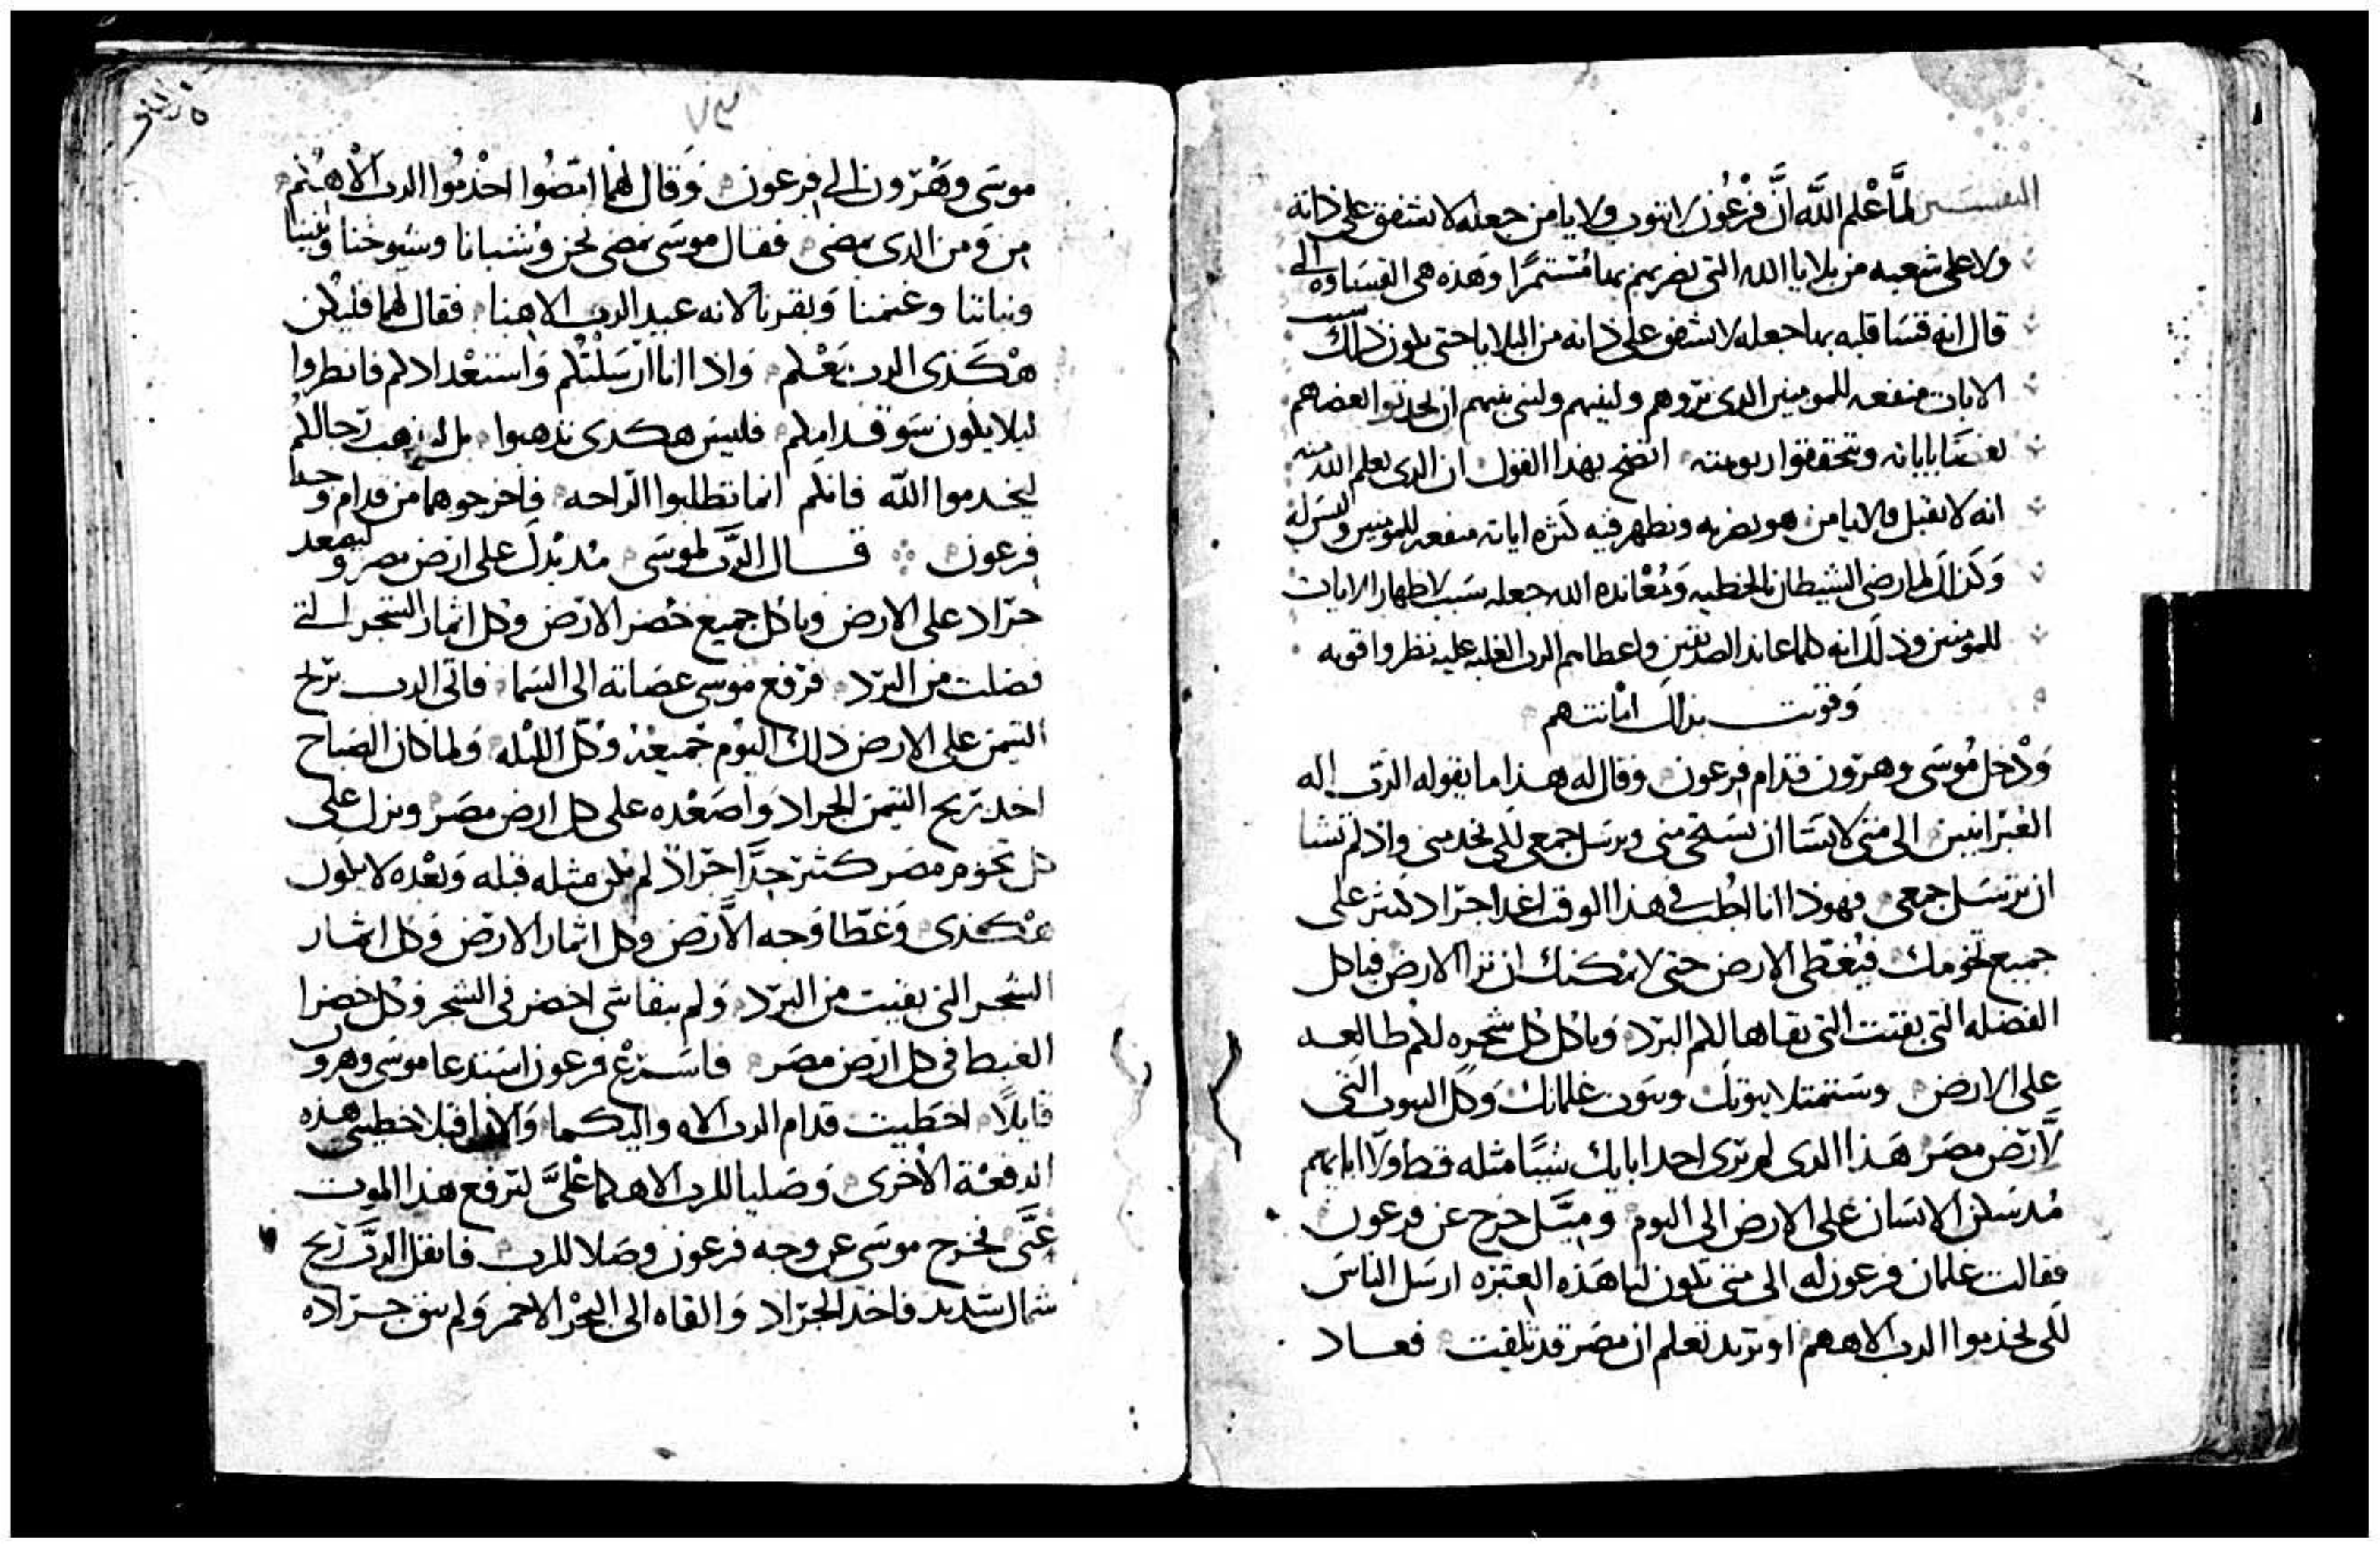 التفسير لما علم الله ان فرعون لا يتوب ولا يامن جعله لا يشفق على ذاته
ولا على شعبه من بلايا الله التى يضربهم بها مستمرا وهذه هى القساوه التى
قال انه قسا قلبه بها جعله لا يشفق على ذاته من البلايا حتى يكون ذلك سبب
الايات منفعه للمومنين الدى تروهم ولبنيهم ولبنى بنيهم ان يحدثوا بعضهم
بعضا باياته ويتحققوا ربوبيته اتضح بهذا القول ان الدى يعلم الله منه
انه لا يقبل ولا يامن هو يضربه ويظهر فيه كثره اياته منفعه للمومنين وليس له
وكذلك لما رضى الشيطان بالخطيه ومعانده الله جعله سبب لاظهار الايات
للمومنين وذلك انه كلما عاند الصديقين واعطاهم الرب الغلبه عليه نظروا قوته
وقويت بذلك امانتهم
ودخل موسى وهرون قدام فرعون وقال له هذا ما يقوله الرب اله
العبرانيين الى متى لا تشا ان تستحى منى وترسل جمعى لكى يخدمنى واذ لم تشا
ان ترسل جمعى فهوذا انا اجلب فى هذا الوقت اغدا جراد كثير على
جميع تخومك فيغطى الارض حتى لا يمكنك ان ترا الارض فياكل
الفضله التى بقيت التى بقاها لكم البرد وياكل كل شجره لكم طالعه
على الارض وستمتلا بيوتك وبيوت غلمانك وكل البيوت التى
لارض مصر هذا الدى لم ترى احد ابايك شيا مثله قط ولا ابايهم
مند سكن الانسان على الارض الى اليوم وميل خرج عن فرعون
فقالت غلمان فرعون له الى متى تكون لنا هذه العثره ارسل الناس
لكى يخدموا الرب الاههم او تريد تعلم ان مصر قد تلفت فعاد
٧٣
موسى وهرون الى فرعون وقال لهما امضوا اخدموا الرب الاهكم
من ومن الدى يمضى فقال موسى نمضى نحن وشبانا وشيوخنا وبنينا
وبناتنا وغنمنا وبقرنا لانه عيد الرب الاهنا فقال لهما فليكن
هكذى الرب معكم واذا انا ارسلتكم واستعدادكم فانظروا
ليلا يكون سو قدامكم فليس هكدى تدهبوا بل لتذهب رجالكم
ليخدموا الله فانكم انما تطلبوا الراحه فاخرجوهما من قدام وجه
فرعون قال الرب لموسى مد يدك على ارض مصر وليصعد
جراد على الارض وياكل جميع خضر الارض وكل اثمار الشجر التى
فضلت من البرد فرفع موسى عصاته الى السما فاتى الرب بريح
التيمن على الارض ذلك اليوم جميعه وكل الليله ولما كان الصباح
اخد ريح التيمن الجراد واصعده على كل ارض مصر ونزل على
كل تخوم مصر كثير جدا جرادا لم يكن مثله قبله وبعده لا يكون
هكذى وغطا وجه الارض وكل اثمار الارض وكل اثمار
الشجر التى بقيت من البرد ولم يبقا شى اخضر فى الشجر وكل خضرا
الغيط فى كل ارض مصر فاسرع فرعون استدعا موسى وهرون
قايلا اخطيت قدام الرب الاهكما واليكما والان اقبلا خطيتى هذه
الدفعة الاخرى وصليا للرب الاهكما على ليرفع هذا الموت
عنى فخرج موسى عن وجه فرعون وصلا للرب فانقل الرب ريح
شمال شديد فاخد الجراد والقاه الى البحر الاحمر ولم يبق جراده